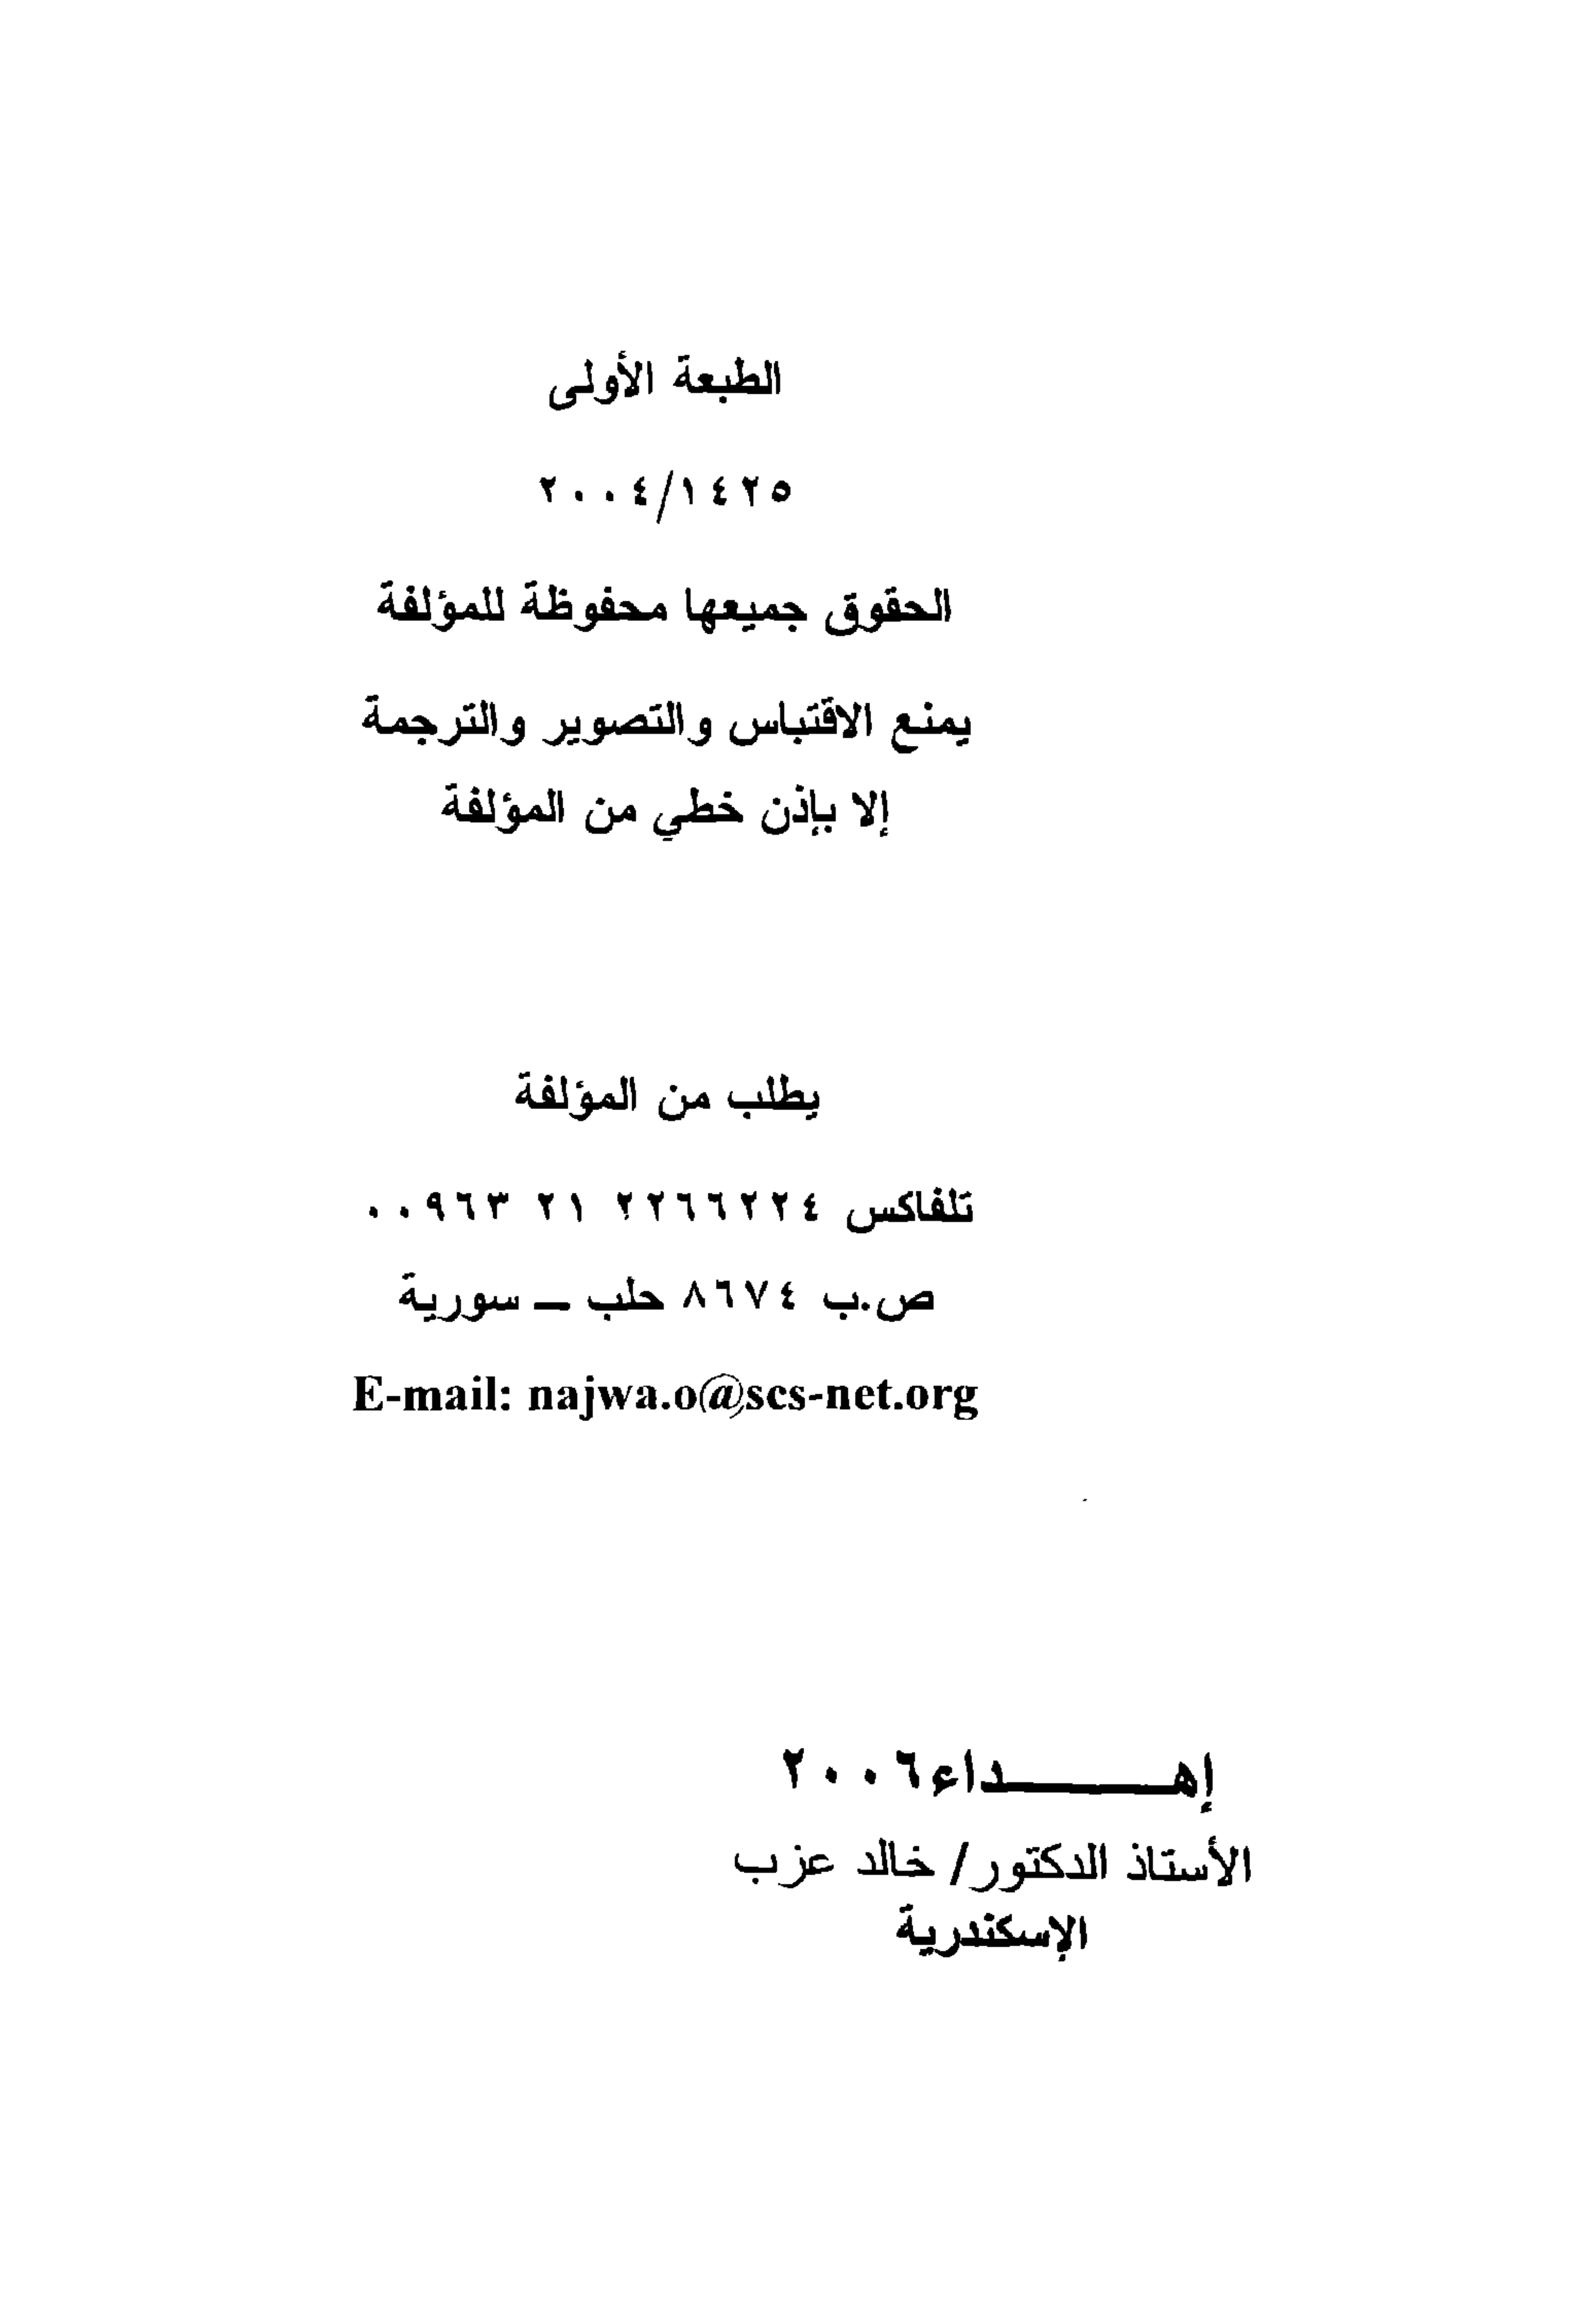 الطبعة الأولى
٢٠٠٤/١٤٢٥
الحقوق جميعها محفوظة للمؤلفة
يمنع الاقتباس والتصوير والترجمة
إلا بإذن خطي من المؤلفة
يطلب من المؤلفة
تلفاكس ٢٢٦٦٢٢٤ ٢١ ٠٠٩٦٣
ص.ب ٨٦٧٤ حلب – سورية
E-mail: najwa.o@scs-net.org
إهـــــــداء٢٠٠٦
الأستاذ الدكتور/ خالد عزب
الإسكندرية